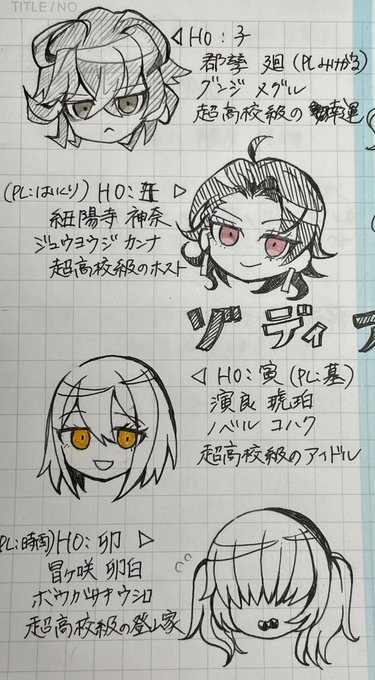 TITLE / NO
◁ HO：子
郡撃 廻 (PL:みかがる)
グンジ メグル
超高校級の 幸運
(PL:はにくり) HO：丑 ▷
紐陽寺 神奈
ジュウヨウジ カンナ
超高校級のホスト
ゾディア
◁ HO：寅 (PL:墓)
演良 琥珀
ノベル コハク
超高校級のアイドル
HO：卯 ▷
冒ヶ咲 卯白
ボウガサキウシロ
超高校級の登山家